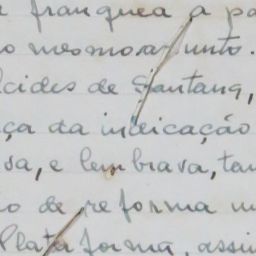 franquea a pa
o mesmo assunto.
cides de Santana,
ça da indicação
sa, e lembrava, tam
o de reforma
Plataforma, assi